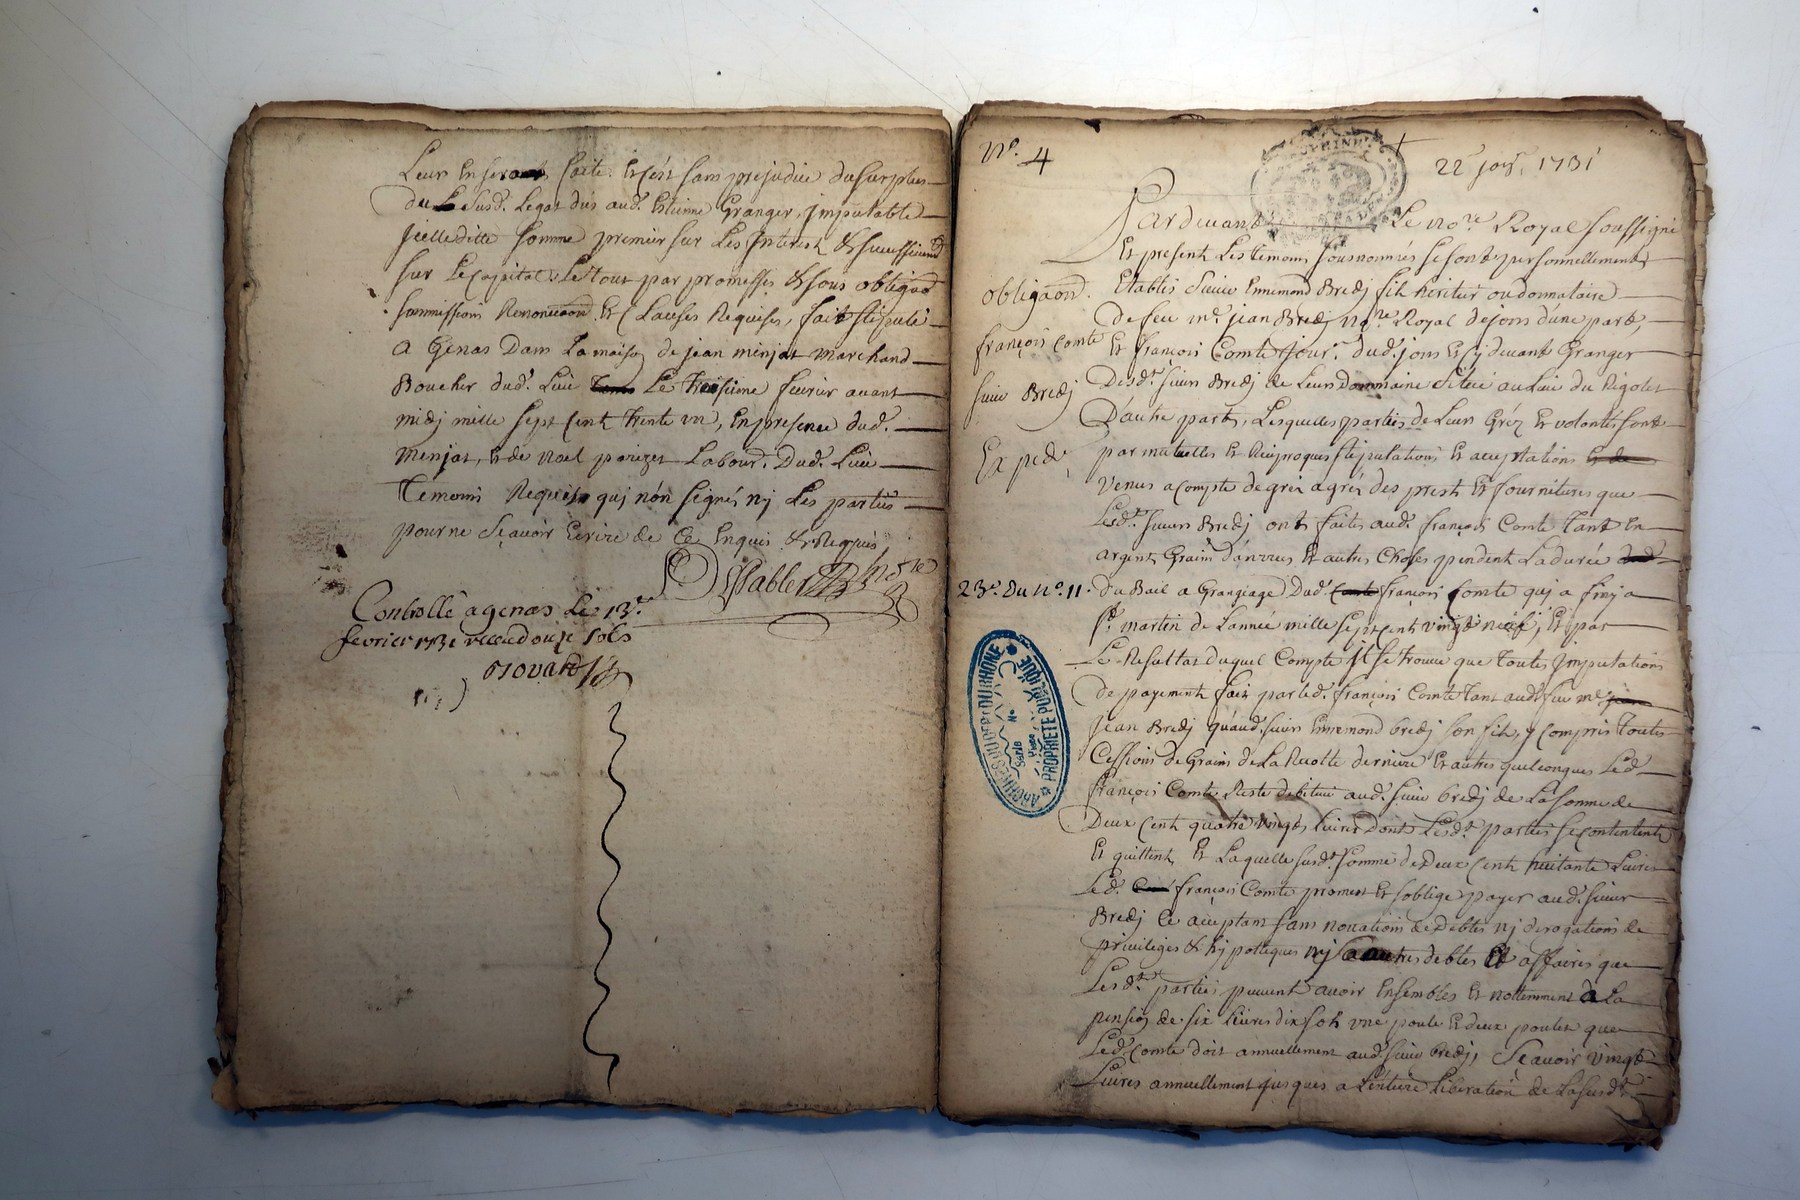 Leur En seront faite. Et c'est sans prejudice du surplus
du Susd. Legat dûs aud. Etienne Granger, Imputable
Icelle ditte somme premier sur Les Interest & successivemt
sur Le Capital, Le tout par promesses & sous obligaon
summissions Renonciaon Et Clauses Requises, fait & stipulé
A Genas Dans La maison de jean minjat marchand
Boucher dud. Lieu Le Troisieme fevrier avant
midj mille sept Cent trente un, En presence dud.
minjat, Et de Noel parizet Labour. Dud. Lieu
Témoins Requis quj nón signés nj Les parties
pour ne sçavoir Ecrire de Ce Enquis & Requis,
nore
Controllé a genas Le 13e
fevrier 1731 Receu douze sols
No. 4
22 janv. 1731
Pardevant Le nore Royal soussigné
Et present Les temoins sousnommés se sont personnellement
Etablis sieur Ennemond Bredj fils heritier ou donnataire
De feu me. jean Bredj nore Royal de jons d'une part,
Et françois Comte jour. dud. jons Et Cy devant Granger
Desd. sieurs Bredj de Leur Dommaine scitué au Lieu du Rigolet
D'autre part, Lesquelles parties de Leurs Gréz Et volontés sont
par mutuelles Et Reciproques stipulations Et acceptations Et de
Venus a Compte de gré a gré des prest Et fournitures que
Lesd. sieurs Bredj ont faites aud. françois Comte Tant En
argent, Grains danrées Et autres Choses pendent La durée
du Bail a Grangeage Dud. Comte françois Comte quj a finj a
st. martin de L'année mille sept cent vingt neuf, Et par
Le Resultat duquel Compte Il se trouve que Toutes Imputations
de payements fait par led. françois Comte tant aud. feu me jean
Jean Bredj qu'aud. sieur Ennemond bredj son fils, y Compris Toutes
Cessions de Grains de La Recolte derniere Et autres quelconques Led.
françois Comte Reste debiteur aud. sieur bredj de La somme de
Deux Cent quatre vingts Livres Dont Lesd. parties se Contentent
Et quittent, Et Laquelle susd. somme de Deux Cent huitante Livres
Led. françois Comte promest Et s'oblige payer aud. sieur
Bredj Ce acceptant sans novations de Debtes nj derogations de
privileges & hypotteques nj a autres debtes Et affaires que
Lesd. parties peuvent avoir Ensembles Et nottemment a La
pension de six Livres dix sols une poule Et deux poulets que
Led. Comte doit annuellement aud. sieur Bredj, Sçavoir vingt
Livres annuellement jusques a L'entiere Liberation de La susd.
obligaon.
françois Comte
sieur Bredj
Exped.
23e. Du No. 11.
ARCHIVES DU DEPT DU RHONE
PROPRIETE PUBLIQUE